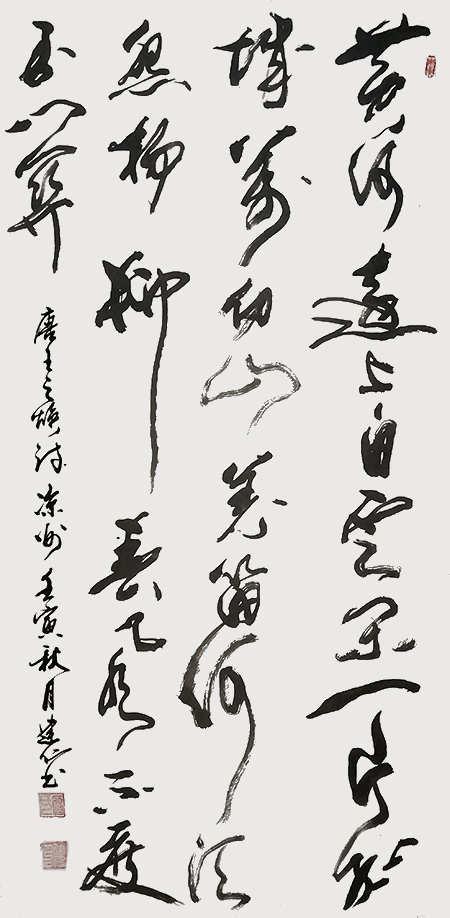 黄河遠上白雲间一片孤
城萬仞山羌笛何须
怨楊柳春风不度
玉门關
唐王之焕诗凉州壬寅秋月建书